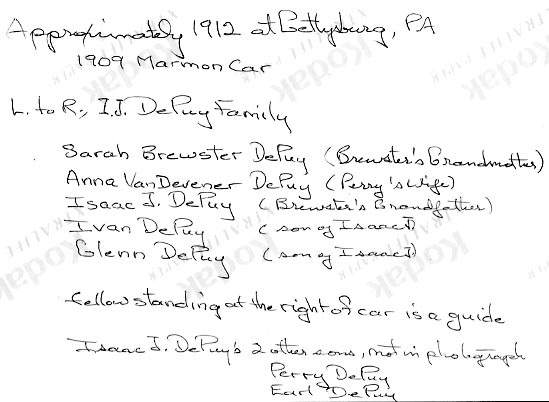 Approximately 1912 at Gettysburg, PA
1909 Marmon Car
L. to R., I.J. DePuy Family
Sarah Brewster DePuy (Brewster's Grandmother)
Anna VanDevener DePuy (Perry's wife)
Isaac J. DePuy (Brewster's Grandfather)
Ivan DePuy (son of Isaac J)
Glenn DePuy (son of Isaac J)
fellow standing at the right of car is a guide
Isaac J. DePuy's 2 other sons, not in photograph
Perry DePuy
Earl DePuy
Kodak
Kodak
Kodak
Kodak
Kodak